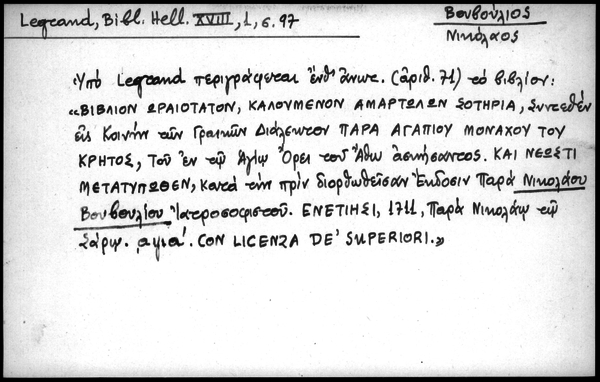 Legrand, Bibl. Hell. XVIII, 1, σ. 97
Βουβούλιος
Νικόλαος
Ὑπὸ Legrand περιγράφεται ἔνθ' ἄνωτ. (ἀριθ. 71) τὸ βιβλίον:
«ΒΙΒΛΙΟΝ ΩΡΑΙΟΤΑΤΟΝ, ΚΑΛΟΥΜΕΝΟΝ ΑΜΑΡΤΩΛΩΝ ΣΩΤΗΡΙΑ, Συντεθὲν
εἰς Κοινὴν τῶν Γραικῶν Διάλεκτον ΠΑΡΑ ΑΓΑΠΙΟΥ ΜΟΝΑΧΟΥ ΤΟΥ
ΚΡΗΤΟΣ, Τοῦ ἐν τῷ Ἁγίῳ Ὄρει τοῦ Ἄθω ἀσκήσαντος. ΚΑΙ ΝΕΩΣΤΙ
ΜΕΤΑΤΥΠΩΘΕΝ, Κατὰ τὴν πρὶν διορθωθεῖσαν Ἔκδοσιν Παρὰ Νικολάου
Βουβουλίου Ἰατροσοφιστοῦ. ΕΝΕΤΙΗΣΙ, 1711, Παρὰ Νικολάῳ τῷ
Σάρῳ. ͵αψια΄. CON LICENZA DE' SUPERIORI.»